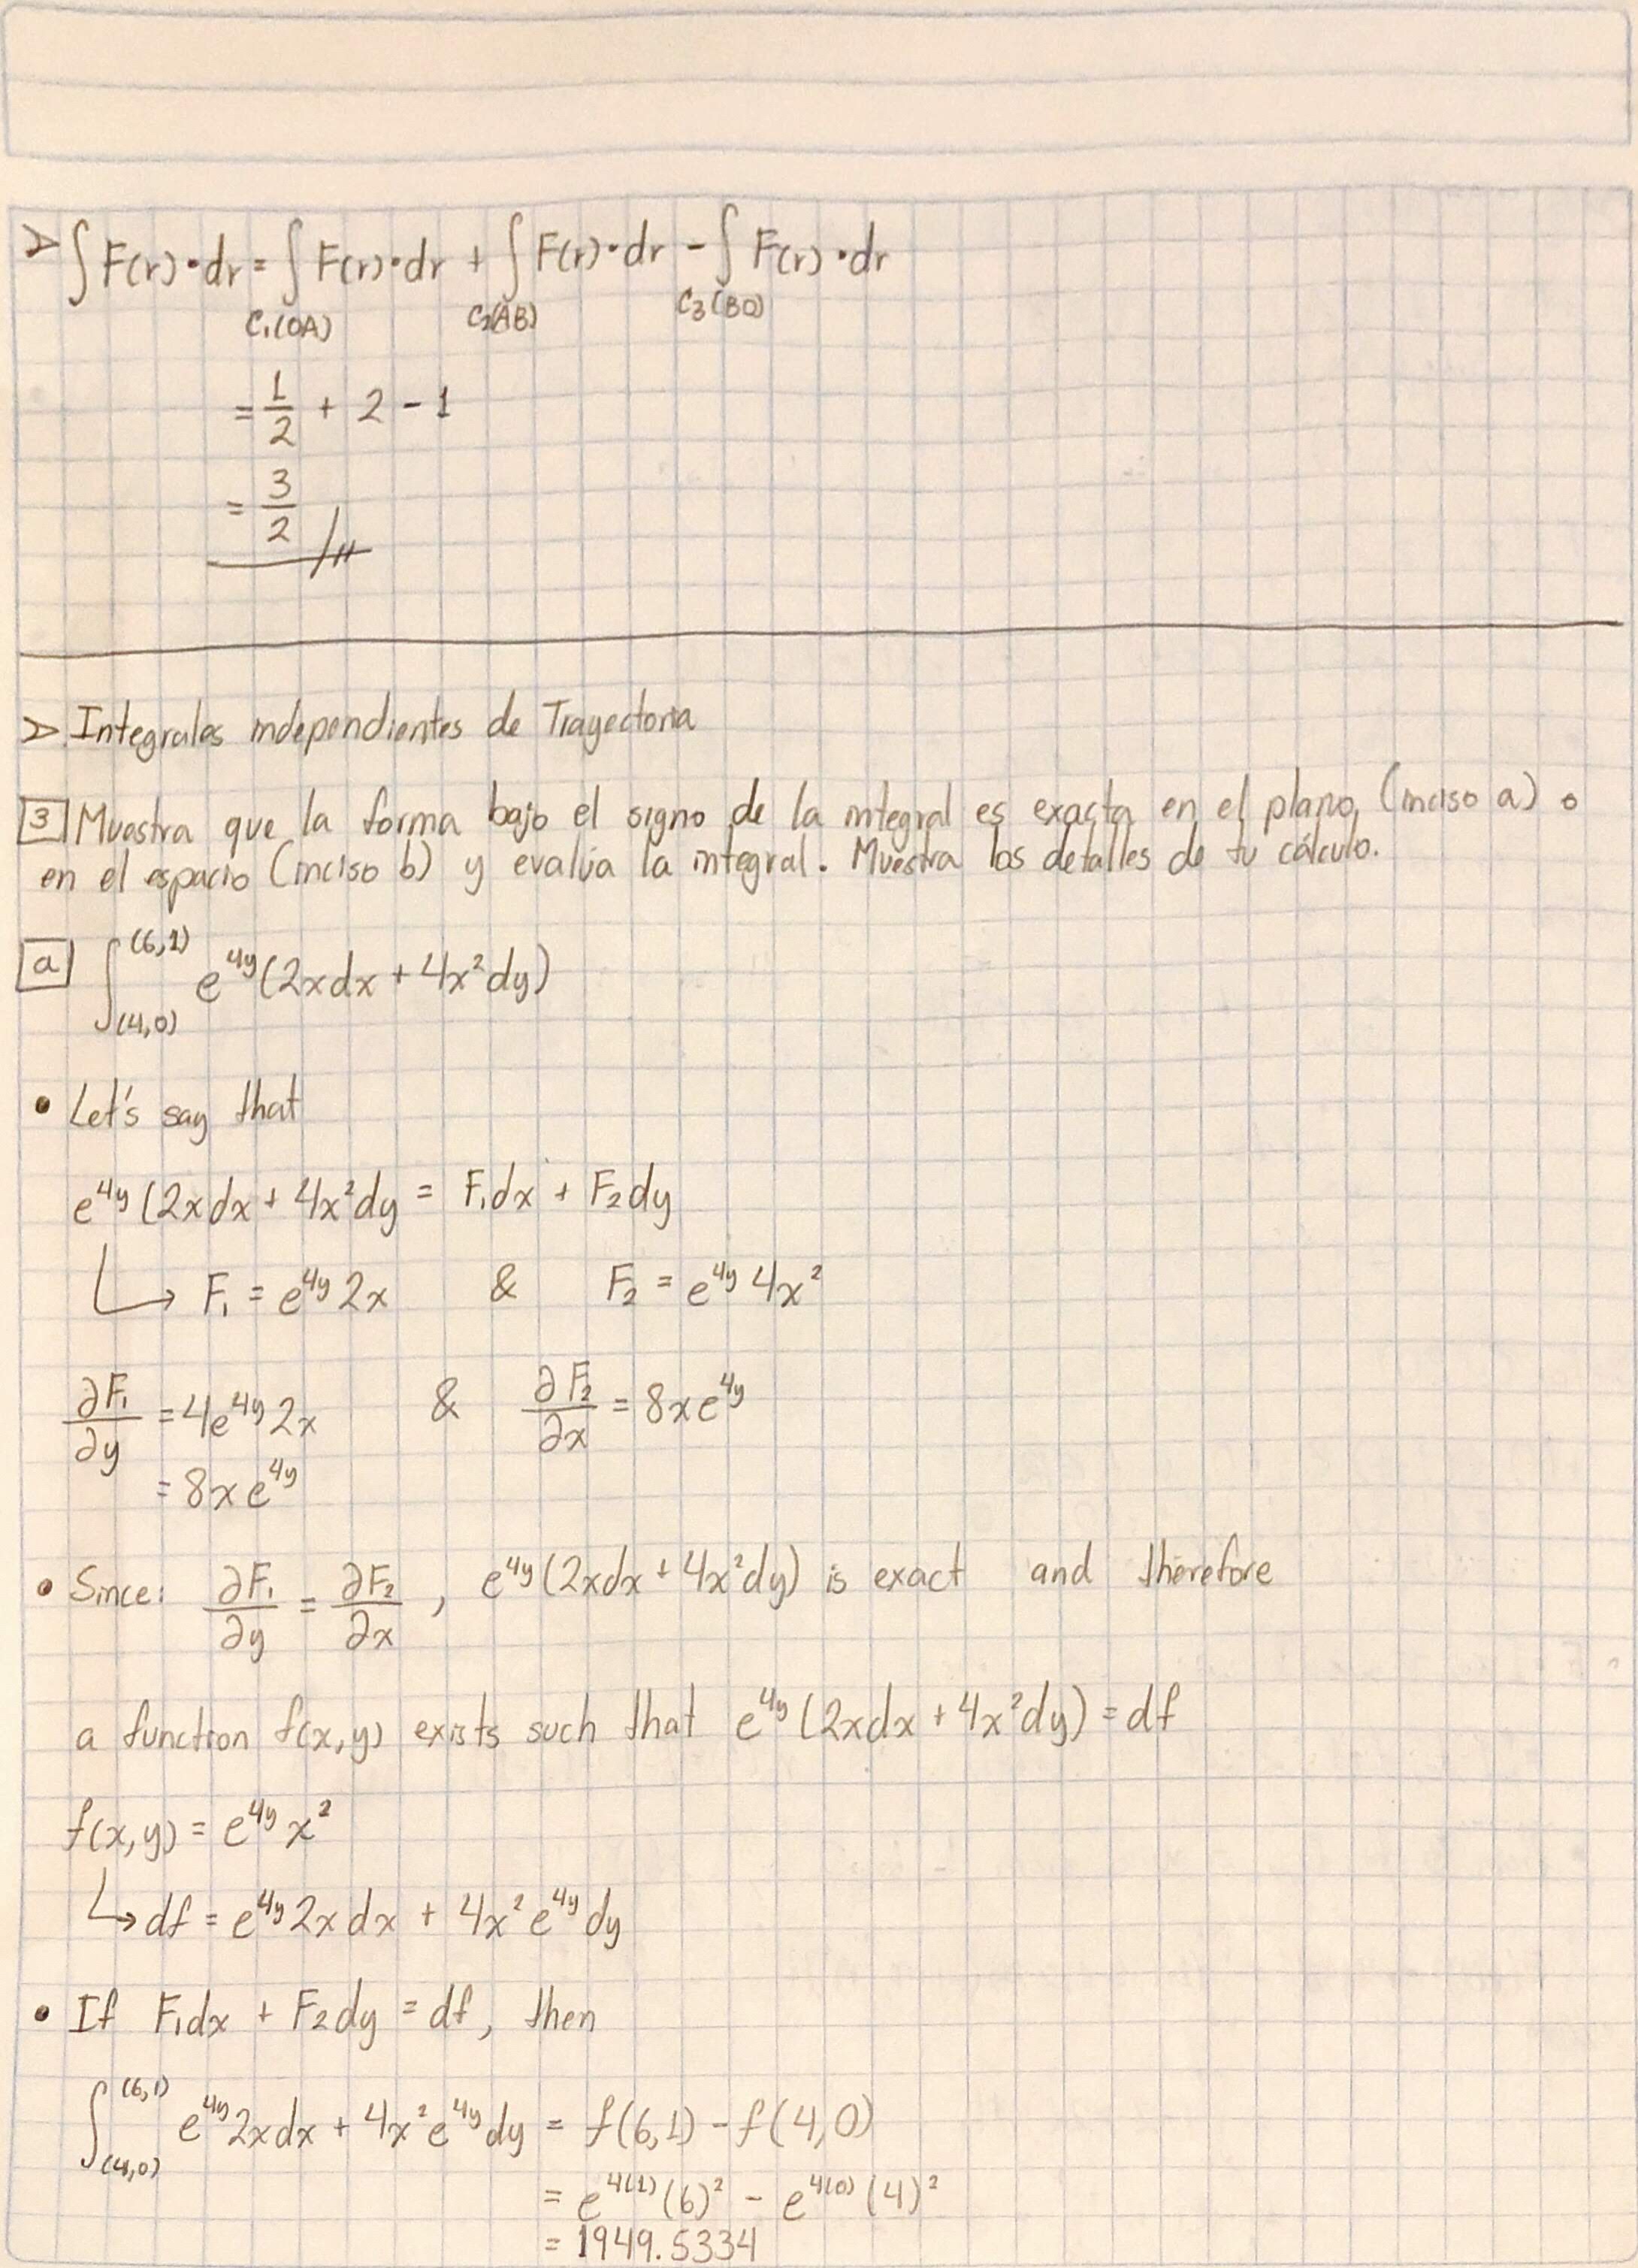 ∫ F(r)•dr = ∫ F(r)•dr + ∫ F(r)•dr - ∫ F(r)•dr
C₁(OA) C₂(AB) C₃(BO)
= 1/2 + 2 - 1
= 3/2
Integrales independientes de Trayectoria
3 Muestra que la forma bajo el signo de la integral es exacta en el plano, (inciso a) o
en el espacio (inciso b) y evalúa la integral. Muestra los detalles de tu cálculo.
a ∫_(4,0)^(6,1) e^4y (2xdx + 4x²dy)
• Let's say that
e^4y (2xdx + 4x²dy = F₁dx + F₂dy
↳ F₁ = e^4y 2x & F₂ = e^4y 4x²
∂F₁/∂y = 4e^4y 2x & ∂F₂/∂x = 8xe^4y
= 8xe^4y
• Since: ∂F₁/∂y = ∂F₂/∂x , e^4y (2xdx + 4x²dy) is exact and therefore
a function f(x,y) exists such that e^4y (2xdx + 4x²dy) = df
f(x,y) = e^4y x²
↳ df = e^4y 2xdx + 4x² e^4y dy
• If F₁dx + F₂dy = df, then
∫_(4,0)^(6,1) e^4y 2xdx + 4x² e^4y dy = f(6,1) - f(4,0)
= e^4(1) (6)² - e^4(0) (4)²
= 1949.5334